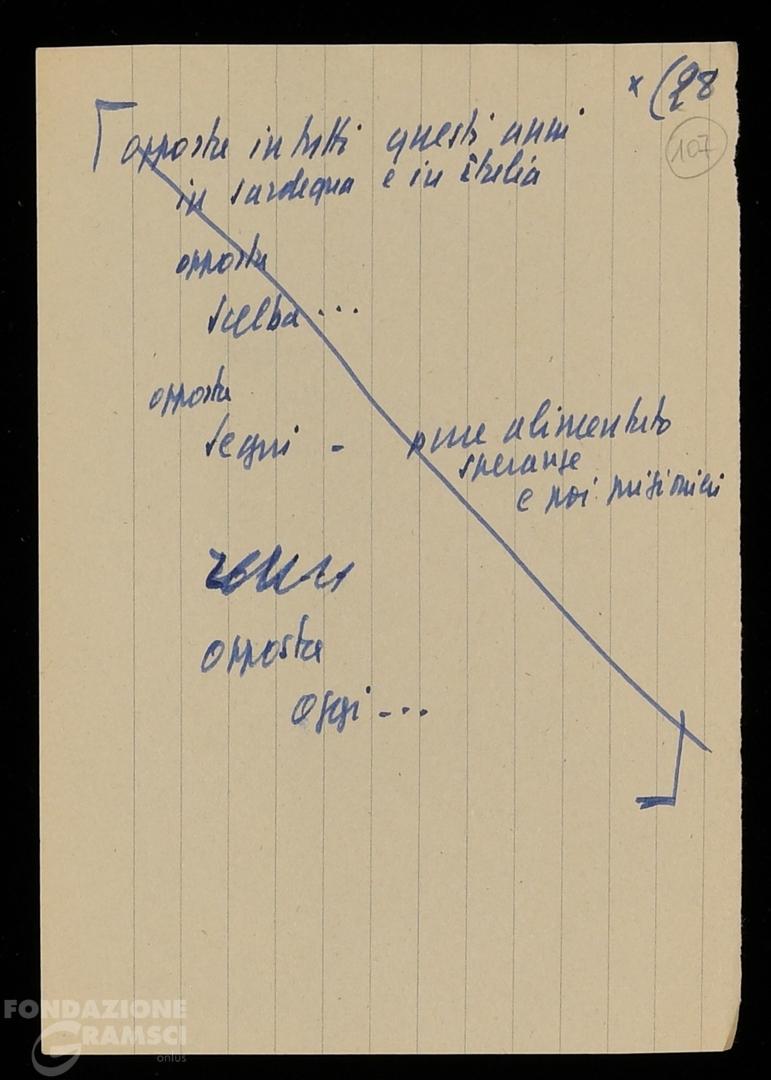 x (28
107
opposta in tutti questi anni
in Sardegna e in Italia
opposta
Scelba ...
opposta
Segni - pure alimentato
speranze
e poi prigionieri
opposta
oggi - ...
FONDAZIONE
GRAMSCI
onlus